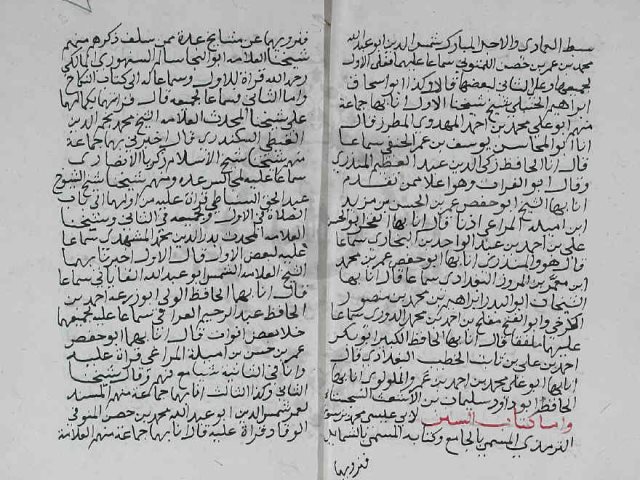 سبط البخاري والاجل المبارك شمس الدين ابو عبد الله
محمد بن عمر بن حصن المتوفى سماعا عليهما فعلى الاول
لجميعها وعلى الثاني لبعضها قالا وكذا ابو اسحاق
ابراهيم الحنبلي شيخ شيخنا الاول انا بها جماعة
منهم ابو علي محمد بن احمد المهدوي المطرز قال
انا ابو المحاسن يوسف بن عمر الحنفي سماعا
قال انا الحافظ زكي الدين عبد العظيم المنذري
وقال ابو الفرات وهو اعلا ممن تقدم
انا بها الشيخ ابو حفص عمر بن الحسن بن مزيد
ابن اميلة المراغي اذنا قال انا بها الفخر ابو الحسن
علي بن احمد بن عبد الواحد بن البخاري سماعا
قال هو والمنذري انا بها ابو حفص عمر بن محمد
ابن معمر بن المؤرز البغدادي سماعا قال انا بها
الشيخان ابو البدر ابراهيم بن محمد بن منصور
الكرخي وابو الفتح مفلح بن احمد بن محمد الدومي سماعا
عليهما ملفقا قال انا بها الحافظ الكبير ابو بكر
احمد بن علي بن ثابت الخطيب البغدادي قال
انا بها ابو علي محمد بن احمد بن عمرو اللولوي انا بها
الحافظ ابو داود سليمان بن الاشعث السجستاني
واما كتاب السنن لابي عيسى محمد بن سورة
الترمذي المسمى بالجامع وكتابه المسمى بالشمائل
فنرويها
فنرويهما عن مشايخ عدة ممن سلف ذكرهم منهم
شيخنا العلامة ابو النجا سالم السنهوري المالكي
رحمه الله قراة للاول وسماعا له الى كتاب النكاح
واما الثاني فسماعا لجميعه قال قراتهما بكمالهما
على شيخنا المحدث العلامة الشيخ محمد نجم الدين
الغيطي السكندري قال اخبرني بهما جماعة
منهم شيخنا شيخ الاسلام زكريا الانصاري
سماعا عليه ومنهم شيخنا شيخ الشيوخ
عبد الحق السنباطي قراة عليه من اولهما الى باب
الصلاة في الاول ولجميعه في الثاني وشيخنا
العلامة المحدث بدر الدين محمد المشهدي سماعا
عليه لبعض الاول قال الاول اخبرنا بهما
الشيخ العلامة الشمس ابو عبد الله القاياتي سماعا
قال انا بها الحافظ الولي ابو زرعة احمد بن
الحافظ عبد الرحيم العراقي سماعا عليه لجميعها
خلا بعض افوات قال انا بها ابو حفص
عمر بن حسن بن اميلة المراغي قراة عليه
وانا في الثانية شامع فهم وقال شيخنا
الثاني وكذا الثالث انا بها جماعة منهم المسند
لعمر شمس الدين ابو عبد الله محمد بن حصن المتوفى
الوفاد قراة عليه قال انا بهما جماعة منهم العلامة